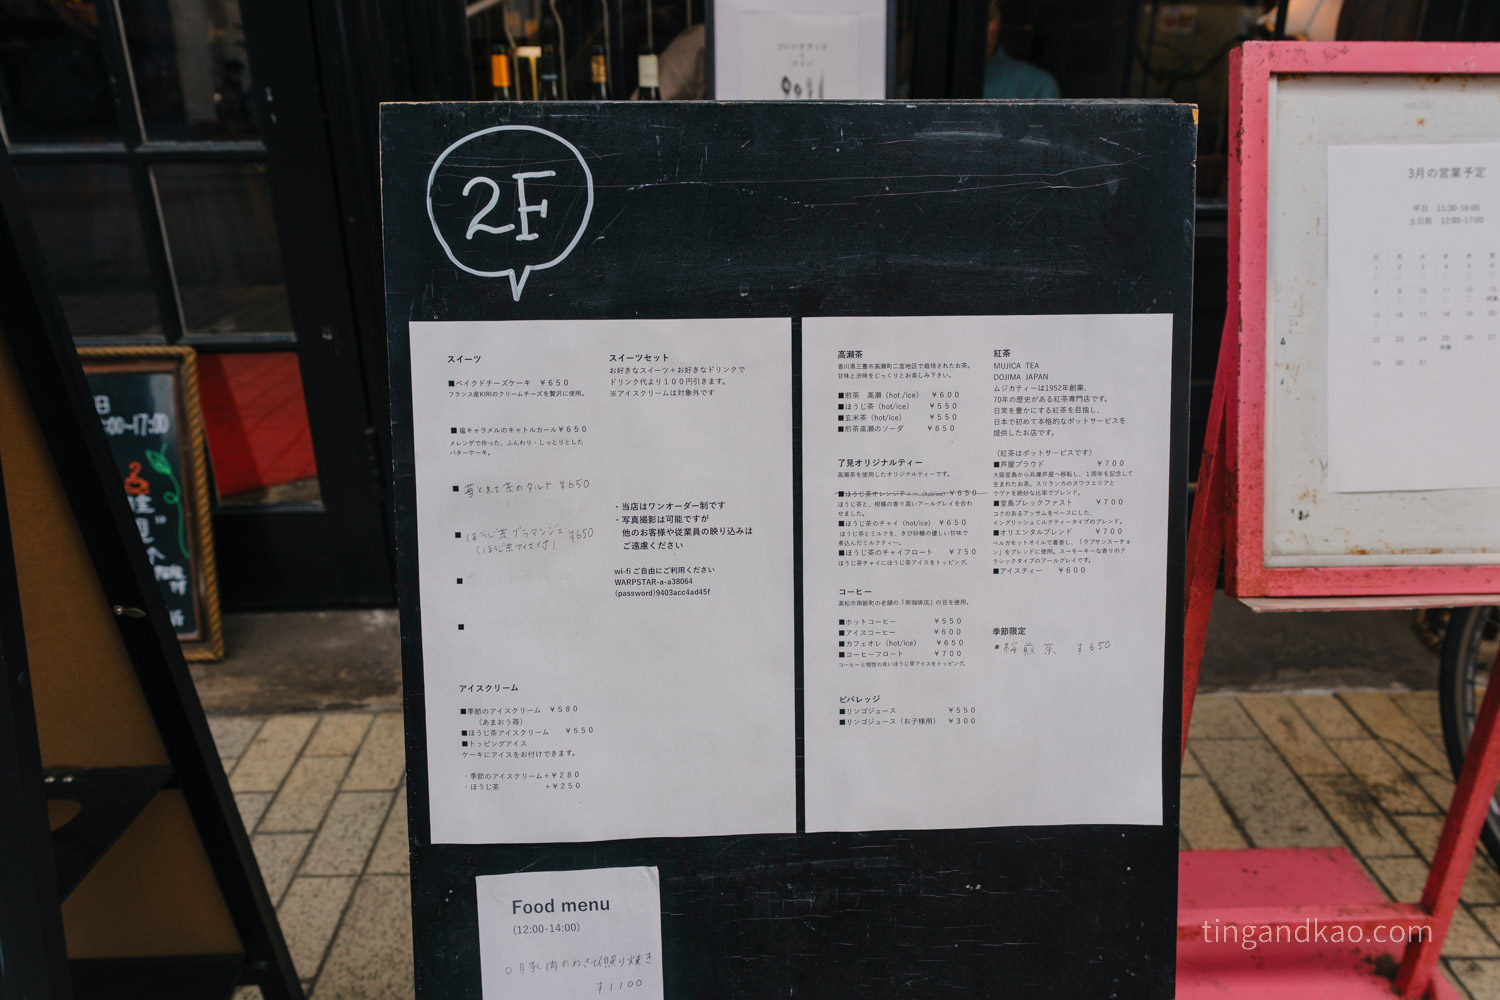 2F
スイーツ
■ベイクドチーズケーキ ￥６５０
フランス産KIRIのクリームチーズを贅沢に使用。
■塩キャラメルのキャトルカール￥６５０
メレンゲで作った、ふんわり・しっとりとした
バターケーキ。
■ ￥650
■ ほうじ茶ブラマンジェ ￥650
(ほうじ茶アイス付)
■
■
アイスクリーム
■季節のアイスクリーム ￥５８０
（あまおう苺）
■ほうじ茶アイスクリーム ￥５５０
■トッピングアイス
ケーキにアイスをお付けできます。
・季節のアイスクリーム＋￥２８０
・ほうじ茶 ＋￥２５０
スイーツセット
お好きなスイーツ＋お好きなドリンクで
ドリンク代より１００円引きます。
※アイスクリームは対象外です
・当店はワンオーダー制です
・写真撮影は可能ですが
他のお客様や従業員の映り込みは
ご遠慮ください
wi-fi ご自由にご利用ください
WARPSTAR-a-a38064
(password)9403acc4ad45f
高瀬茶
香川県三豊市高瀬町二宮地区で栽培されたお茶。
甘味と渋味をじっくりとお楽しみ下さい。
■煎茶 高瀬（hot /ice） ￥６００
■ほうじ茶（hot/ice） ￥５５０
■玄米茶（hot/ice） ￥５５０
■煎茶高瀬のソーダ ￥６５０
了見オリジナルティー
高瀬茶を使用したオリジナルティーです。
■ほうじ茶オレンジティー（hot/ice）￥６５０
ほうじ茶と、柑橘の香り高いアールグレイを合わ
せました。
■ほうじ茶のチャイ（hot/ice） ￥６５０
ほうじ茶とミルクを、きび砂糖の優しい甘味で
煮込んだミルクティー。
■ほうじ茶のチャイフロート ￥７５０
ほうじ茶チャイにほうじ茶アイスをトッピング。
コーヒー
高松市南新町の老舗の「南珈琲店」の豆を使用。
■ホットコーヒー ￥５５０
■アイスコーヒー ￥６００
■カフェオレ（hot/ice） ￥６５０
■コーヒーフロート ￥７００
コーヒーと相性の良いほうじ茶アイスをトッピング。
ビバレッジ
■リンゴジュース ￥５５０
■リンゴジュース（お子様用） ￥３００
紅茶
MUJICA TEA
DOJIMA JAPAN
ムジカティーは1952年創業、
70年の歴史がある紅茶専門店です。
日常を豊かにする紅茶を目指し、
日本で初めて本格的なポットサービスを
提供したお店です。
（紅茶はポットサービスです）
■芦屋プラウド ￥７００
大阪堂島から兵庫芦屋へ移転し、１周年を記念して
生まれたお茶。スリランカのヌワラエリアと
ウヴァを絶妙な比率でブレンド。
■堂島ブレックファスト ￥７００
コクのあるアッサムをベースにした、
イングリッシュミルクティータイプのブレンド。
■オリエンタルブレンド ￥７００
ベルガモットオイルで着香し、「ラプサンスーチョ
ン」をブレンドに使用。スーモーキーな香りのク
ラシックタイプのアールグレイです。
■アイスティー ￥６００
季節限定
■ 桜煎茶 ￥650
Food menu
(12:00-14:00)
わさび照り焼き
￥1100
3月の営業予定
平日 11:30-16:00
土日祝 12:00-17:00
00~17:00
tingandkao.com